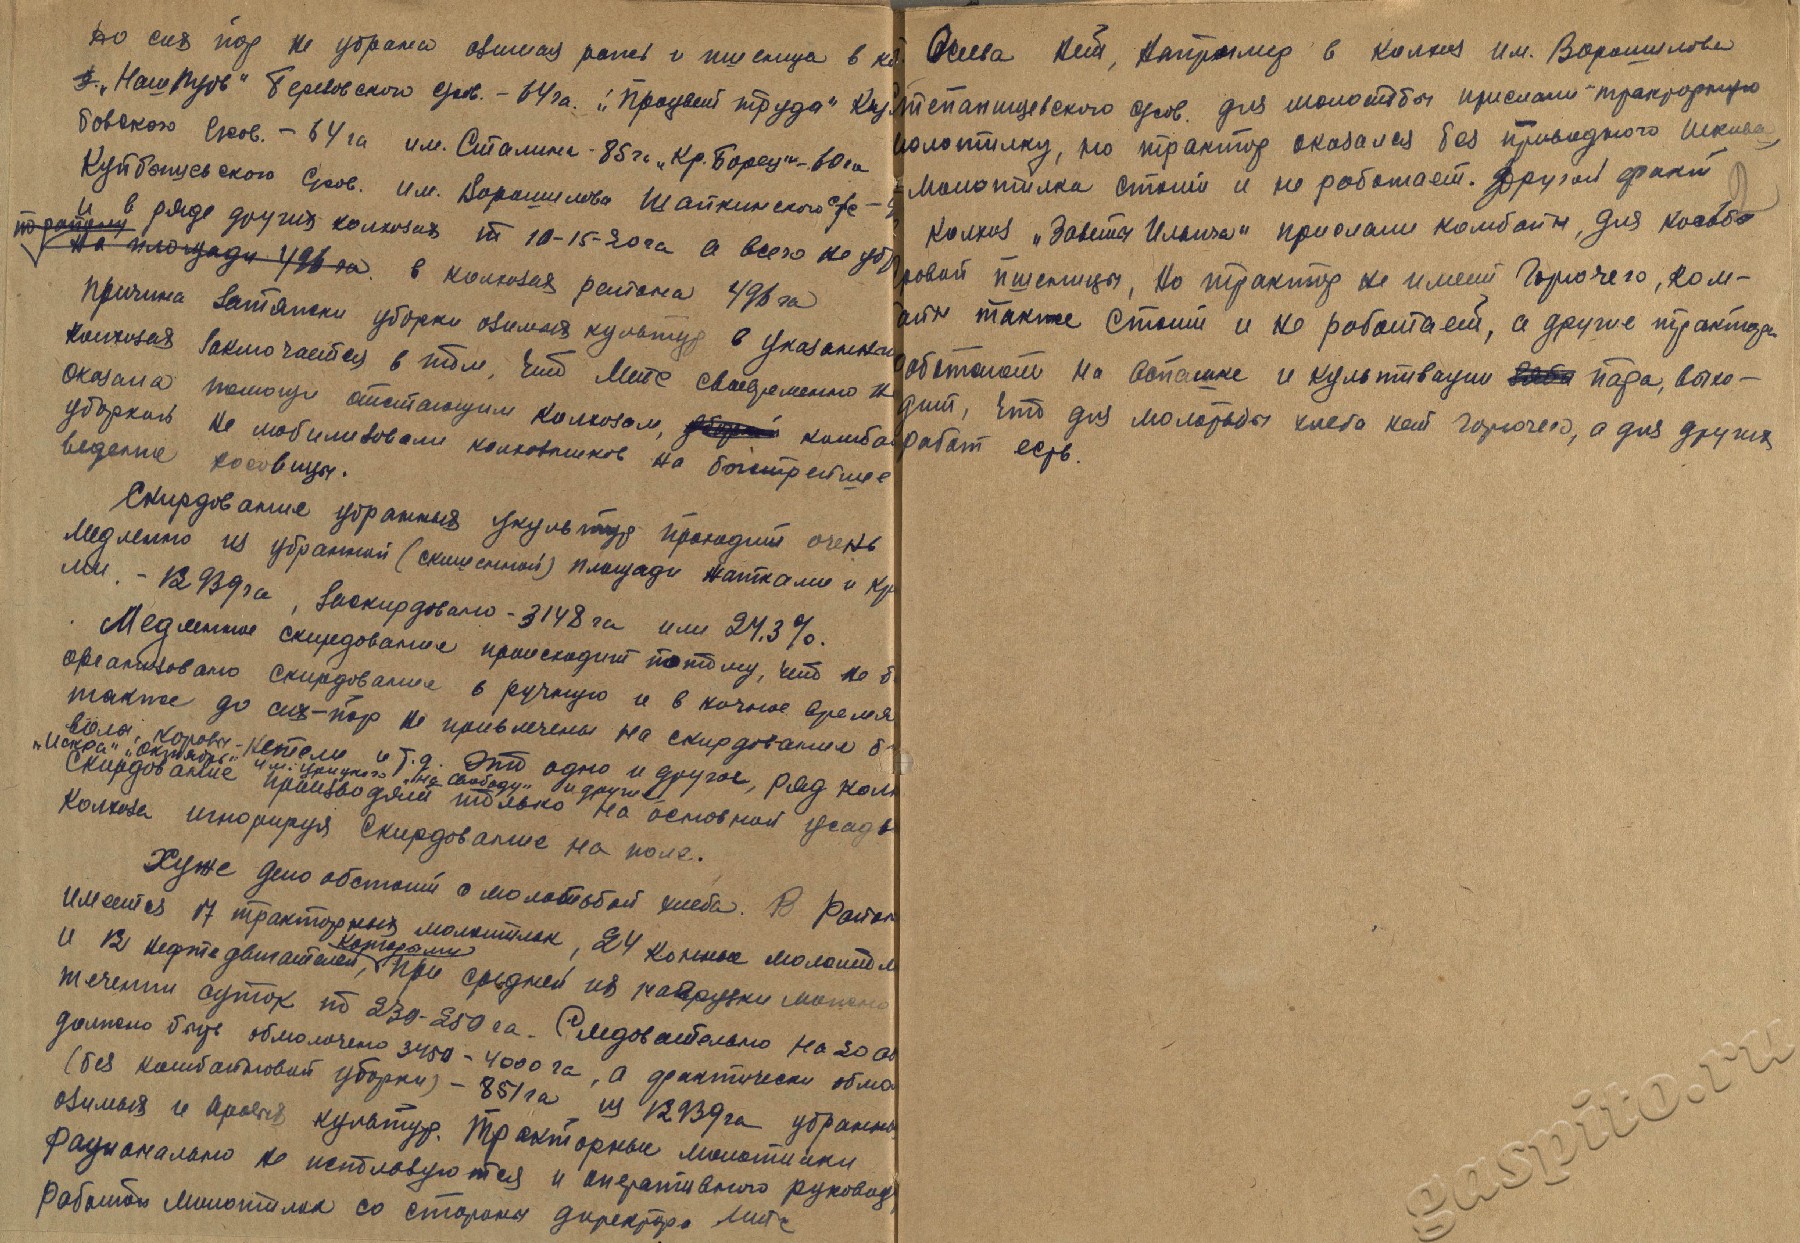 До сих пор не убрана озимая рожь и пшеница в
"Наш Труд" Березовского с/сов. - 64 га. "Процвет труда"
бовского с/сов. - 64 га им. Сталина - 85 га "Кр. Борец" - 60 га
Куйбышевского с/сов. им. Ворошилова Шаткинского с/с -
и в ряде других колхозах от 10-15-20 га а всего не
по району на площади 496 га. в колхозах района 496 га
Причина затяжки уборки озимых культур в
колхозах заключается в том, что МТС своевременно
оказана помощи отстающим колхозам,
уборкой не мобилизовали колхозников на быстрейшее
ведение косовицы.
Скирдование убранных культур проходит очень
медленно из убранной (скошенной) площади жатками и
ми. - 12939 га, заскирдовано - 3148 га или 24,3%.
Медленное скирдование происходит потому, что не
организовано скирдование в ручную и в ночное время
также до сих-пор не привлечены на скирдование
волы, коровы - нетели и т.д. Это одно и другое, ряд
"Искра" "Октябрь" им. Урицкого "на свободу" и другие
скирдование производят только на основной
колхоза игнорируя скирдование на поле.
Хуже дело обстоит с молотьбой хлеба. В
имеется 17 тракторных молотилок, 24 конные
и 12 нефтедвигателей, которыми при средней их нагрузки можно
течении суток по 230-250 га. Следовательно на 20
должно быть обмолочено 3450 - 4000 га, а фактически
(без комбайновой уборки) - 851 га из 12939 га
озимых и яровых культур. Тракторные молотилки
рационально не используются и оперативного
работой молотилок со стороны директора МТС
Осева нет, Например в колхоз им. Ворошилова
Степанищевского с/сов. для молотьбы прислали тракторную
молотилку, но трактор оказался без приводного шкива,
молотилка стоит и не работает. Другой факт
колхоз "Заветы Ильича" прислали комбайн, для косьбы
ровой пшеницы, но трактор не имеет горючего, ком-
айн также стоит и не работает, а другие трактора
работают на вспашке и культивации пара, выхо-
дит, что для молотьбы хлеба нет горючего, а для других
работ есть.
gaspito.ru